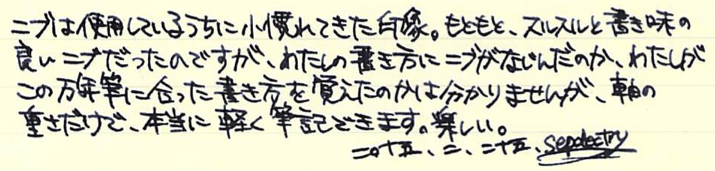 ニブは使用しているうちに小慣れてきた印象。もともと、スルスルと書き味の
良いニブだったのですが、わたしの書き方にニブがなじんだのか、わたしが
この万年筆に合った書き方を覚えたのかは分かりませんが、軸の
重さだけで、本当に軽く筆記できます。楽しい。
二〇十五、二、二十五、